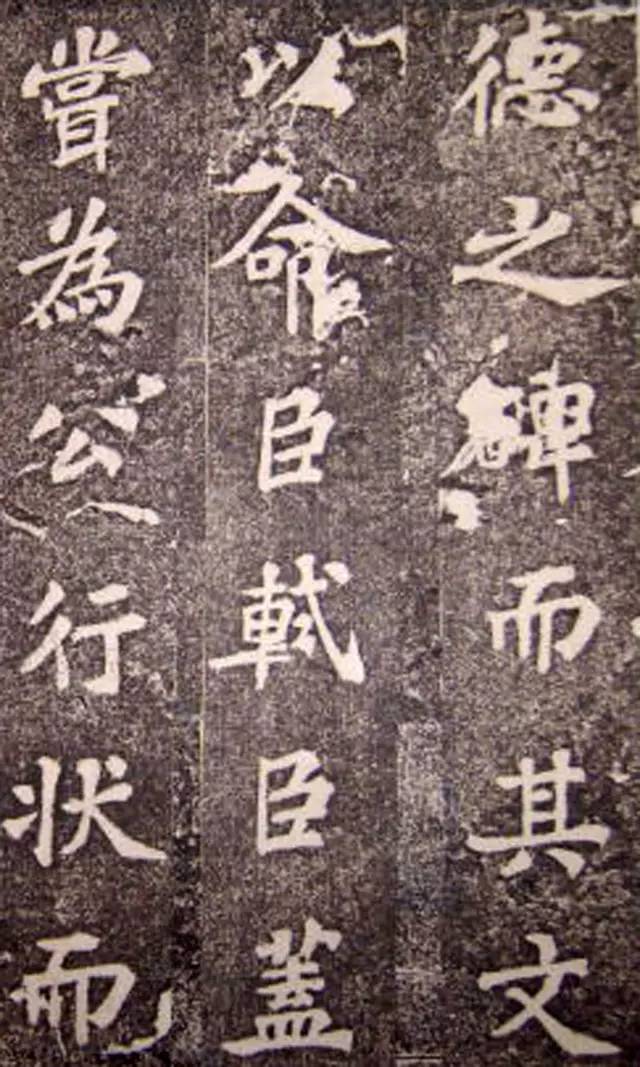 德之碑而其文
以命臣軾臣蓋
嘗為公行状而